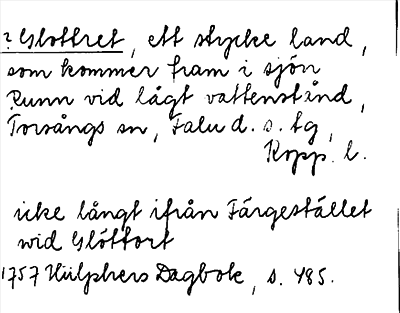 ? Slottret, ett stycke land,
som kommer fram i sjön
Runn vid lågt vattenstånd,
Torsångs sn, Falu d. s. tg,
Kopp. l.
icke långt ifrån Färgestället
wid Slöttort
1757 Hülphers Dagbok, s. 485.